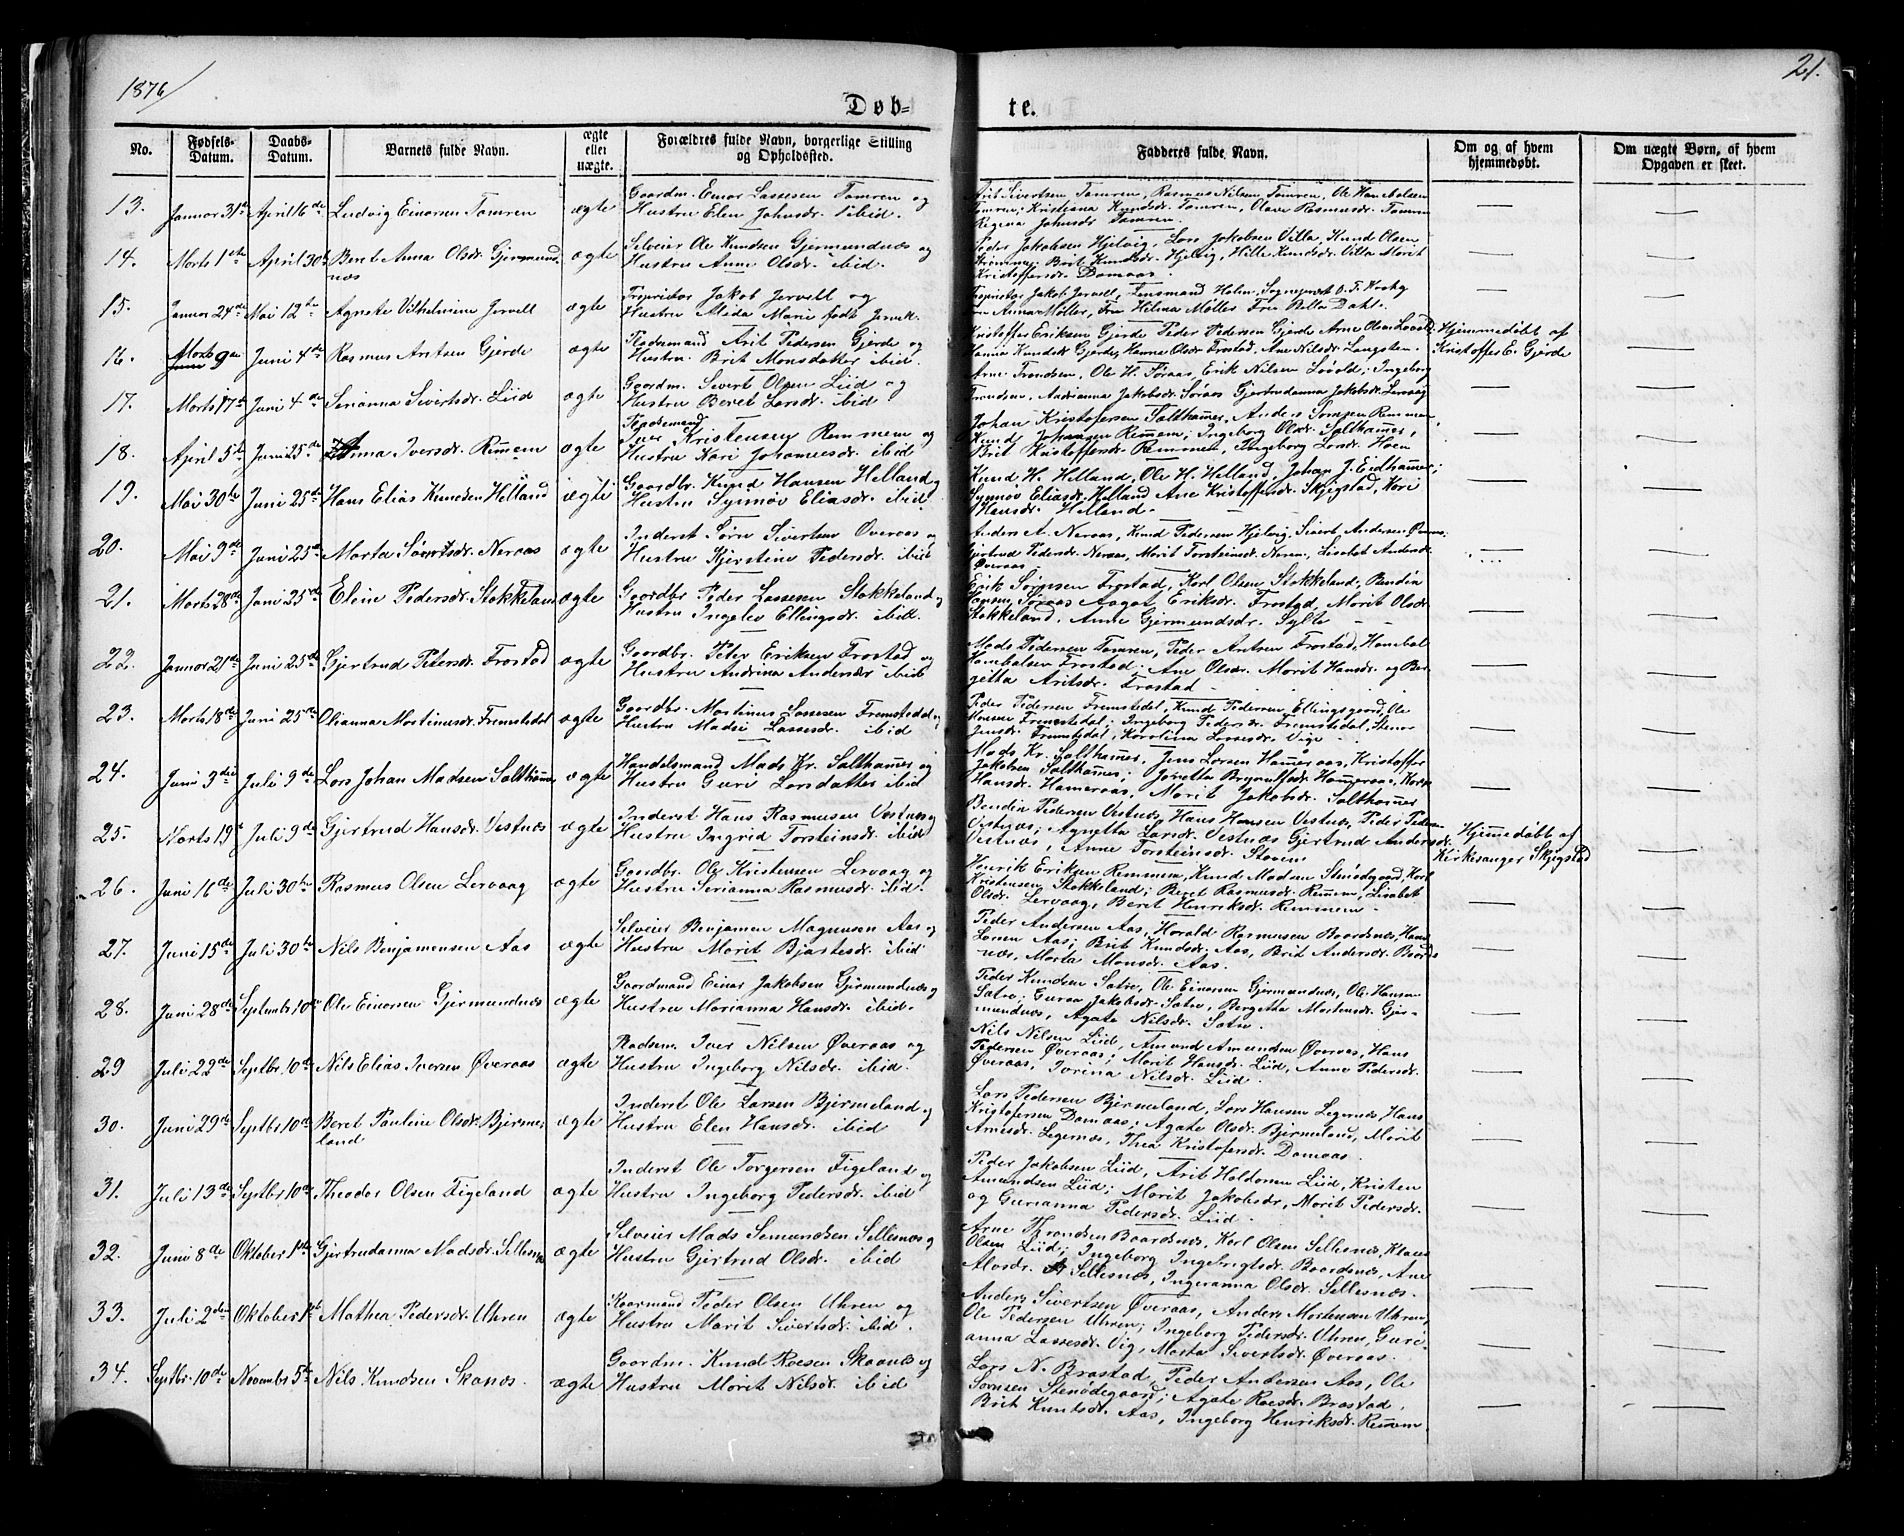 1876
21.
Døb-
te.
No.
Fødsels-Datum.
Daabs-Datum.
Barnets fulde Navn.
ægte eller uægte.
Forældres fulde Navn, borgerlige Stilling og Opholdssted.
Fadderes fulde Navn.
Om og af hvem hjemmedøbt.
Om uægte Børn, af hvem Opgaven er skeet.
13. Januar 31te April 16de Ludvig Einarsen Tomren ægte Gaardm. Einar Lassesen Tomren og
Hustru Elen Johnsdr. ibid.
Arit Sivertsen Tomren, Rasmus Nilsen Tomren, Ole
Tomren; Kristiana Knudsdr. Tomren, Olava Rasmusdr. Tomren
Regina Johnsdr. Tomren
14. Marts 1ste April 30te Beret Anna Olsdr. Gjermund-
næs ægte Selveier Ole Knudsen Gjermundnæs og
Hustru Anne Olsdr. ibid.
Peder Jakobsen Hjelvig, Lars Jakobsen Villa, Knud Olsen
Brit Knudsdr. Hjelvig, Hille Knudsdr. Villa Marit
Kristoffersdr. Damaas.
15. Januar 24de Mai 12te Agnete Vilhelmine Jervell ægte Proprietær Jakob Jervell og
Hustru Alida Marie født Jervell.
Proprietær Jakob Jervell, Lensmand Holm, Sognepræst O. F. Krohg
Anna Møller, Frø Helma Møller Frø Pella Dahl.
16. Marts 9de Juni 4de Rasmus Aritsen Gjerde ægte Pladsemand Arit Pedersen Gjerde og
Hustru Brit Monsdatter ibid.
Kristoffer Eriksen Gjerde Peder Pedersen Gjerde Arne Olsen
Hanna Knudsdr. Gjerde, Hanna Olsdr. Frostad, Ane Nilsdr. Langsten.
Hjemmedøbt af
Kristoffer E. Gjerde
17. Marts 17de Juni 4de Serianna Sivertsdr. Liid ægte Gaardm. Sivert Olsen Liid og
Hustru Beret Larsdr. ibid
Arne Trondsen, Ole H. Søraas, Erik Nilsen Løvold; Ingeborg
Trondsen, Andrianna Jakobsdr. Søraas Gjertrudanna Jakobsdr. Lervaag
18. April 5te Juni 25de Anna Iversdr. Remmem ægte Pladsemand
Iver Kristensen Remmem og
Hustru Kari Johannesdr. ibid
Johan Kristofersen Salthamer, Anders Remmem
Knud Johansen Remmem; Ingeborg Olsdr. Salthamer,
Brit Kristoffersdr. Remmem, Ingeborg Larsdr. Hoem
19. Mai 30te Juni 25de Hans Elias Knudsen Helland ægte Gaardbr. Knud Hansen Helland og
Hustru Synnøv Eliasdr. ibid
Knud H. Helland, Ole H. Helland, Johan J. Eidhamer;
Synnøv Eliasdr. Helland Ane Kristoffersdr. Skjegstad, Kari
Hansdr. Helland.
20. Mai 9de Juni 25de Marta Sørensdr. Neraas ægte Inderst Sørn Sivertsen Overaas og
Hustru Kjerstine Pedersdr. ibid
Anders A. Neraas, Knud Pedersen Hjelvig, Sivert Andersen
Gjertrud Pedersdr. Neraas, Marit Torsteinsdr. Neraas, Lisabet Andersdr.
Øveraas
21. Marts 28de Juni 25de Eline Pedersdr. Stokkeland ægte Gaardbr. Peder Lassesen Stokkeland og
Hustru Ingelev Ellingsdr. ibid.
Erik Sørnsen Frostad, Karl Olsen Stokkeland, Bendia
Hansen Søraas Aagot Eriksdr. Frostad, Marit Olsdr.
Stokkeland, Anne Gjermundsdr. Sylte
22. Januar 21de Juni 25de Gjertrud Petersdr. Frostad ægte Gaardbr. Peter Eriksen Frostad og
Hustru Andrina Andersdr ibid
Mads Pedersen Tomren, Peder Antsen Frostad, Hanibal
Hanibalsen Frostad. Ane Olsdr. Marit Hansdr. og Ber-
getta Aritsdr. Frostad
23. Marts 18de Juni 25de Olianna Martinusdr. Fremstedal ægte Gaardbr. Martinus Lassesen Fremstedal og
Hustru Madsi Lassesdr. ibid
Peder Pedersen Fremstedal, Knud Pedersen Ellingsgaard, Ole
Hansen Fremstedal; Ingeborg Pedersdr. Fremstedal,
Jensdr. Fremstedal, Karolina Lassesdr. Vige
24. Juni 3die Juli 9de Lars Johan Madsen Salthamer ægte Handelsmand Mads Kr. Salthamer og
Hustru Guri Larsdatter ibid
Mads Kr. Salthamer, Jens Larsen Hameraas, Kristoffer
Jakobsen Salthamer; Jonetta Brynulfsdr. Hameraas, Karen
Hansdr. Hameraas, Marit Jakobsdr. Salthamer
25. Marts 19de Juli 9de Gjertrud Hansdr. Vestnæs ægte Inderst Hans Rasmusen Vestnæs og
Hustru Ingrid Torsteinsdr. ibid
Bendia Pedersen Vestnæs, Hans Hansen Vestnæs, Peder Peders.
Vestnæs; Agnetta Larsdr. Vestnæs Gjertrud Andersdr.
Vestnæs, Anne Torsteinsdr. Stoven
Hjemedøbt af
Kirkesanger Skjegstad
26. Juni 16de Juli 30te Rasmus Olsen Lervaag ægte Gaardbr. Ole Kristensen Lervaag og
Hustru Serianna Rasmusdr. ibid.
Henrik Eriksen Remmem, Knud Madsen Stenødegaard, Karl
Kristensen Stokkeland; Beret Rasmusdr. Remem, Lisabet
Olsdr. Lervaag, Beret Henriksdr. Remmem
27. Juni 15de Juli 30te Nils Benjaminsen Aas ægte Selveier Benjamin Magnusen Aas og
Hustru Marit Bjørstesdr. ibid
Peder Andersen Aas, Harald Rasmusen Baardsnæs, Hans
Larsen Aas; Brit Knudsdr. Aas, Brit Andersdr. Baards
næs, Marta Monsdr. Aas.
28. Juni 28de September 10de Ole Einarsen Gjermundnæs ægte Gaardmand Einar Jakobsen Gjermundnæs og
Hustru Marianna Hansdr. ibid.
Peder Knudsen Satre, Ole Einarsen Gjermundnæs, Ole Hansen
Satre; Guraa Jakobsdr. Satre, Bergetta Mortensdr. Gjer-
mundnæs, Agate Nilsdr. Satre.
29 Juli 22de Septbr. 10de Nils Elias Iversen Øveraas ægte Pladsem. Iver Nilsen Øveraas og
Hustru Ingeborg Nilsdr. ibid
Nils Nilsen Liid, Amund Amundsen Øveraas, Hans
Pedersen Øveraas; Marit Hansdr. Liid, Anne Pedersdr.
Øveraas, Jorina Nilsdr. Liid.
30. Juni 29de Septbr. 10de Beret Pauline Olsdr. Bjerme-
land ægte Inderst Ole Larsen Bjermeland og
Hustru Elen Hansdr. ibid
Lars Pedersen Bjermeland, Lars Hansen Legernæs, Hans
Kristofersen Damaas; Agate Olsdr. Bjermeland, Marit
Arnesdr. Legernæs, Thea Kristofersdr. Damaas.
31. Juli 13de Septbr. 10de Theodor Olsen Figeland ægte Inderst Ole Torgersen Figeland og
Hustru Ingeborg Pedersdr. ibid
Peder Jakobsen Liid, Arit Haldorsen Liid, Kristen
Amundsen Liid; Marit Jakobsdr, Marit Pedersdr.
og Gurianna Pedersdr. Liid.
32. Juni 8de Oktober 1ste Gjertrudanna Madsdr. Sellesnæs ægte Selveier Mads Semundsen Sellesnæs og
Hustru Gjertrud Olsdr. ibid
Arne Throndsen Baardsnæs, Karl Olsen Sellesnæs, Klaus
Olsen Liid; Ingeborg Ingebrigtsdr. Baardsnæs, Ane
Alvsdr. Sellesnæs, Ingeranna Olsdr. Sellesnæs.
33. Juli 2den Oktober 1ste Mathea Pedersdr. Uhren ægte Kaarmand Peder Olsen Uhren og
Hustru Marit Sivertsdr. ibid.
Anders Sivertsen Øveraas, Anders Mortensen Uhren,
Ole Pedersen Uhren; Ingeborg Pedersdr. Uhren, Guri-
anna Lassesdr. Vig, Marta Sivertsdr. Øveraas.
34. Septbr. 10de November 5te Nils Knudsen Skanæs ægte Gaardm. Knud Roesen Skaanæs og
Hustru Marit Nilsdr. ibid
Lars N. Brastad, Peder Andersen Aas, Ole
Sørnsen Stenødegaard; Agate Roesdr. Brastad,
Brit Knutsdr. Aas, Ingeborg Henriksdr. Remem